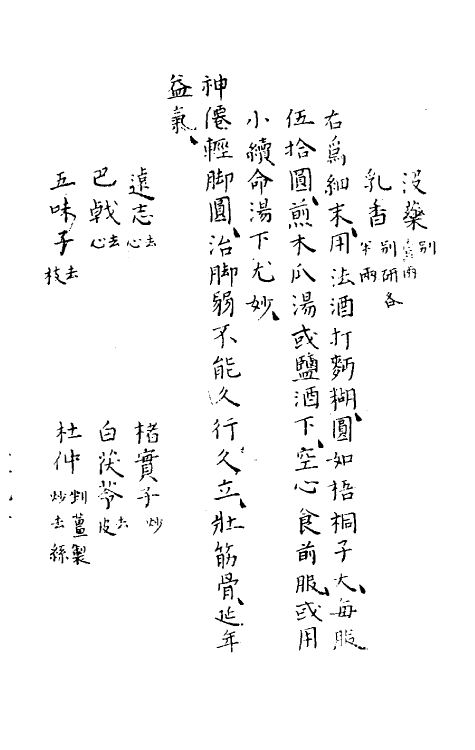 没藥別
乳香別研各半兩
右爲細末用法酒打麪糊圓如梧桐子大每服
伍拾圓煎木瓜湯或鹽酒下空心食前服或用
小續命湯下尤妙
神僊輕脚圓治脚弱不能久行久立壯筋骨延年
益氣
遠志去心　楮實子炒
巴戟去心　白茯苓去皮
五味子去枝　杜仲剉薑製炒去絲